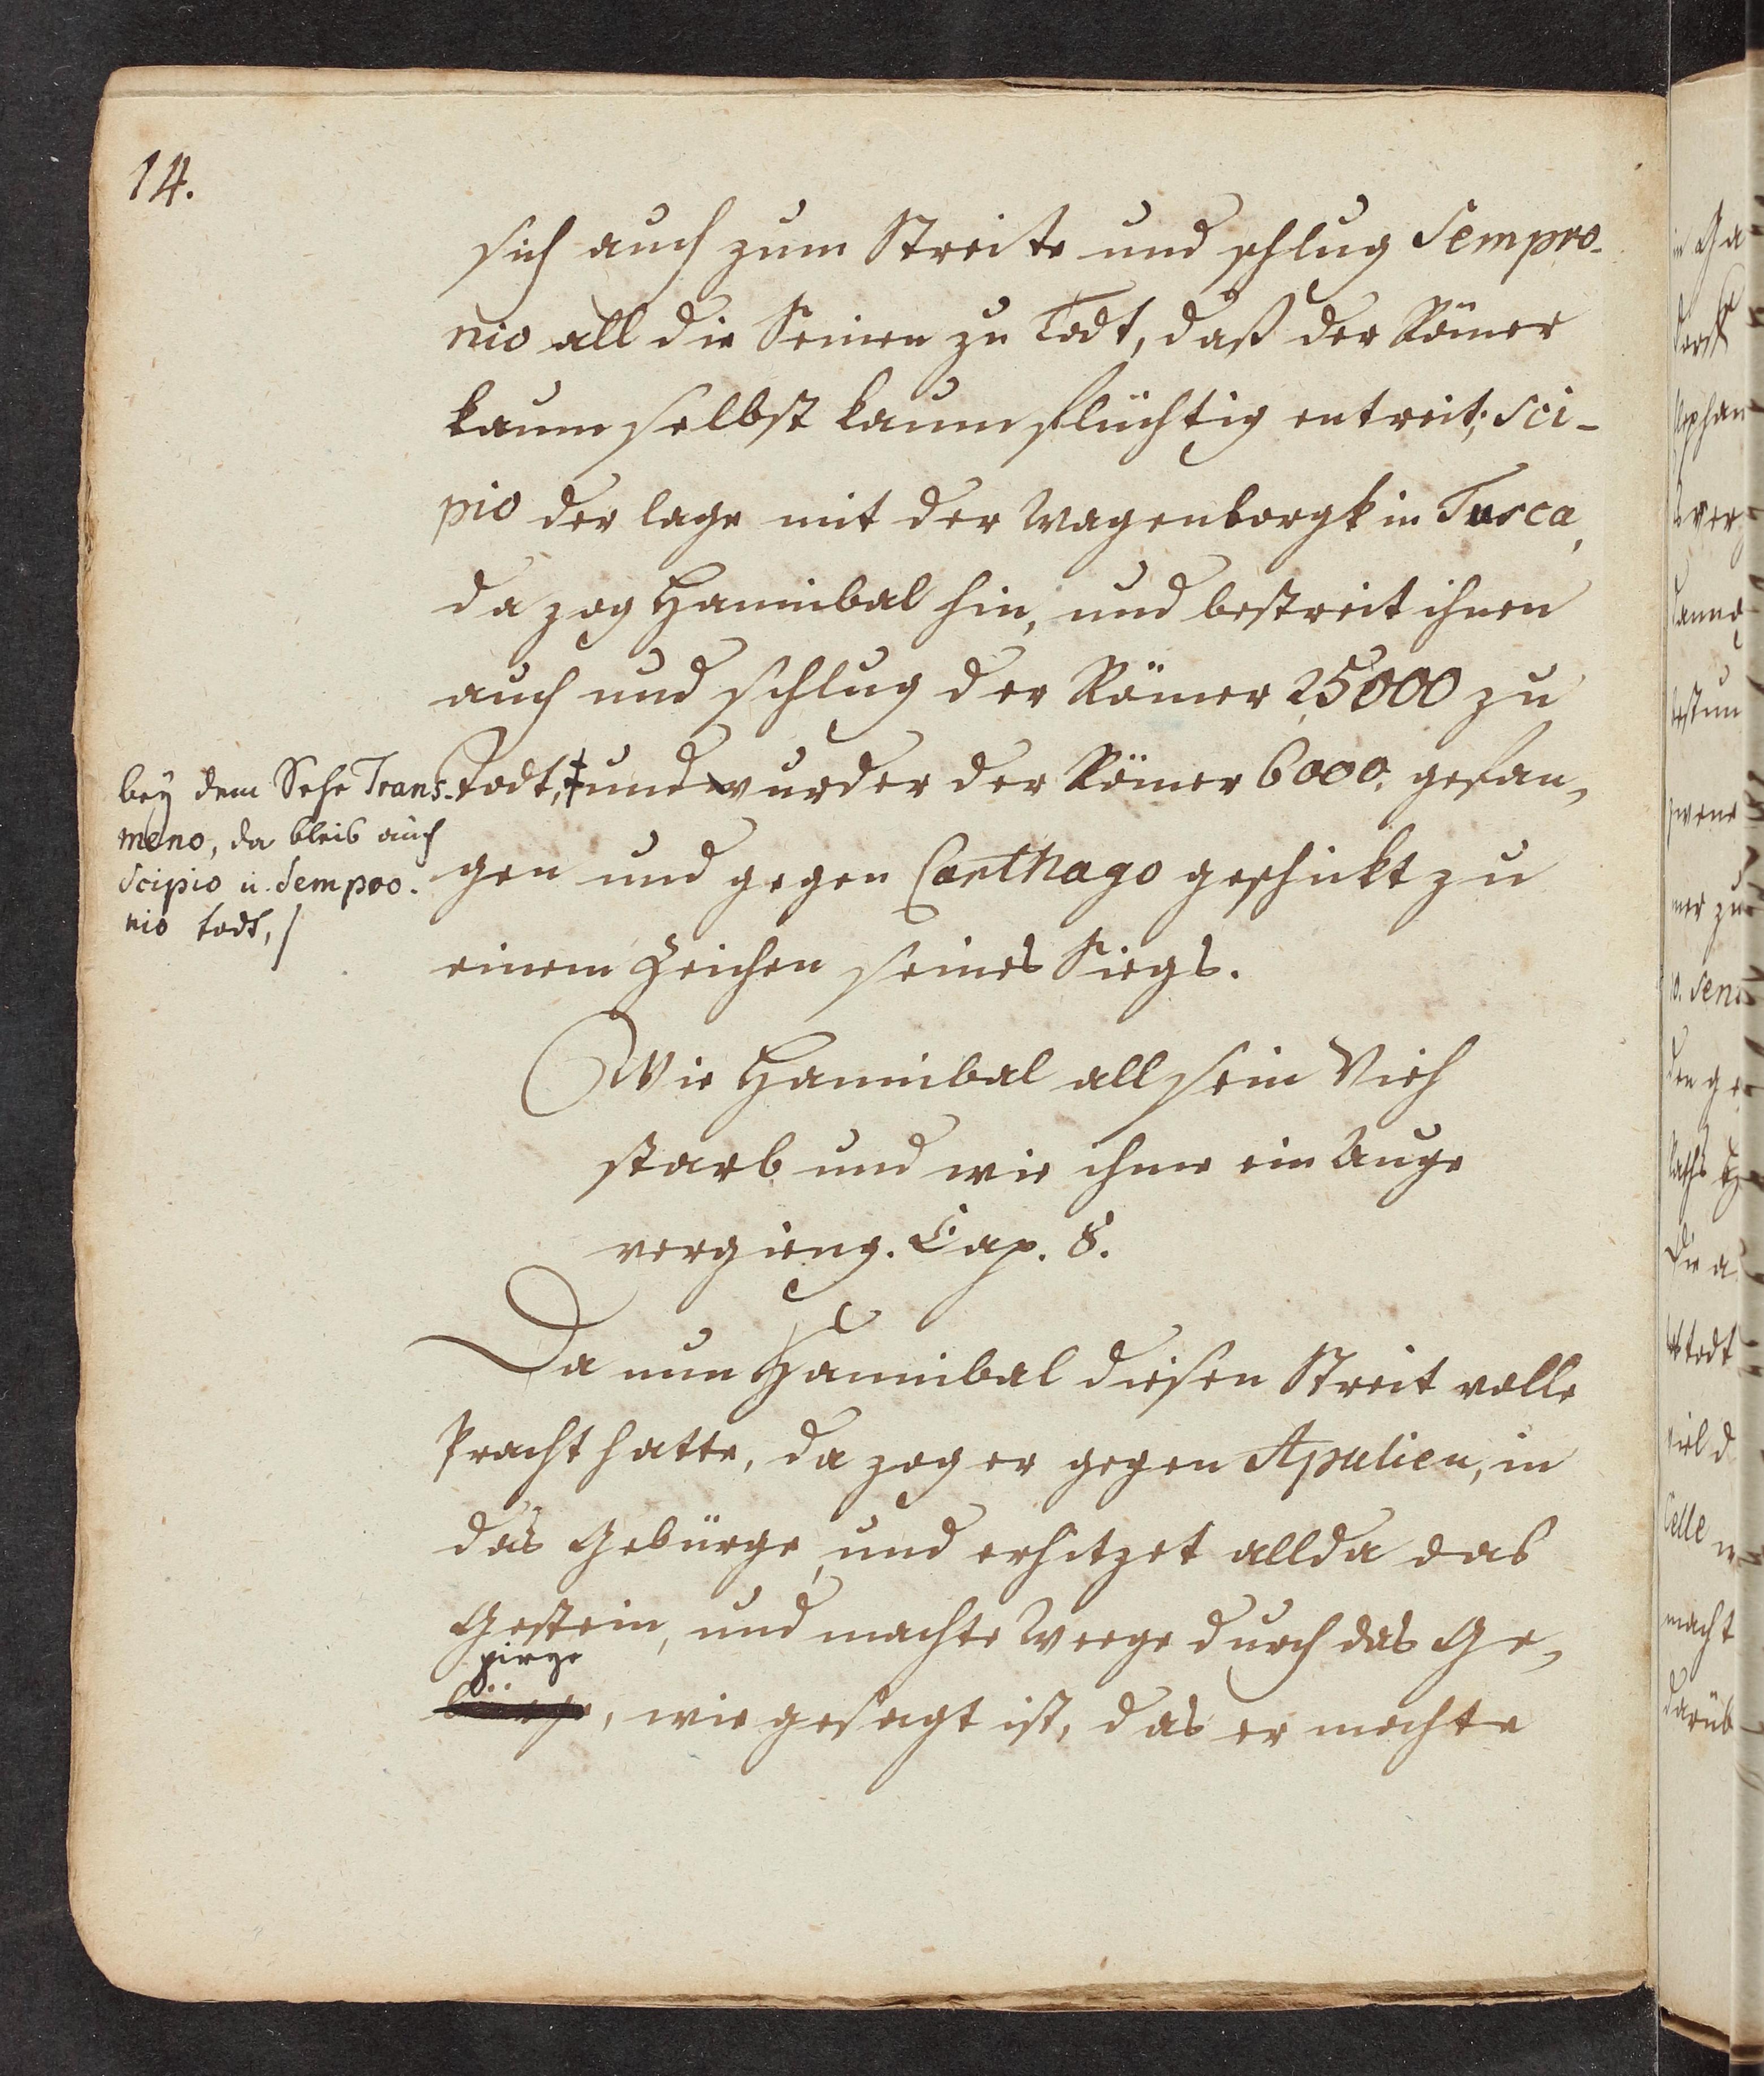 14.
sich auch zum Streite und schlug Sempro-
nio all die Seinen zu Todt, daß der Römer
kaum selbst kaum flüchtig entreit; Sci-
pio der lage mit der Wagenborgk in Tusca,
da zog Hannibal hin, und bestreit ihnen
auch und schlug der Römer 25000 zu
Todt,‡ und wurder der Römer 6000. gefan-
gen und gegen Carthago geschickt zu
einem Zeichen seines Siegs.
bey dem Sehe Trans-
meno, da bleib auch
Scipio u. Sempro-
nio todt, /
Wie Hannibal all sein Vieh
starb und wie ihme ein Auge
vergieng. Cap. 8.
Da nun Hannibal diesen Streit volle
bracht hatte, da zog er gegen Apulien, in
das Gebürge, und erhitzet allda das
Gestein, und machte Weege durch das Ge-
pirge
bürge, wie gesagt ist, das er mochte